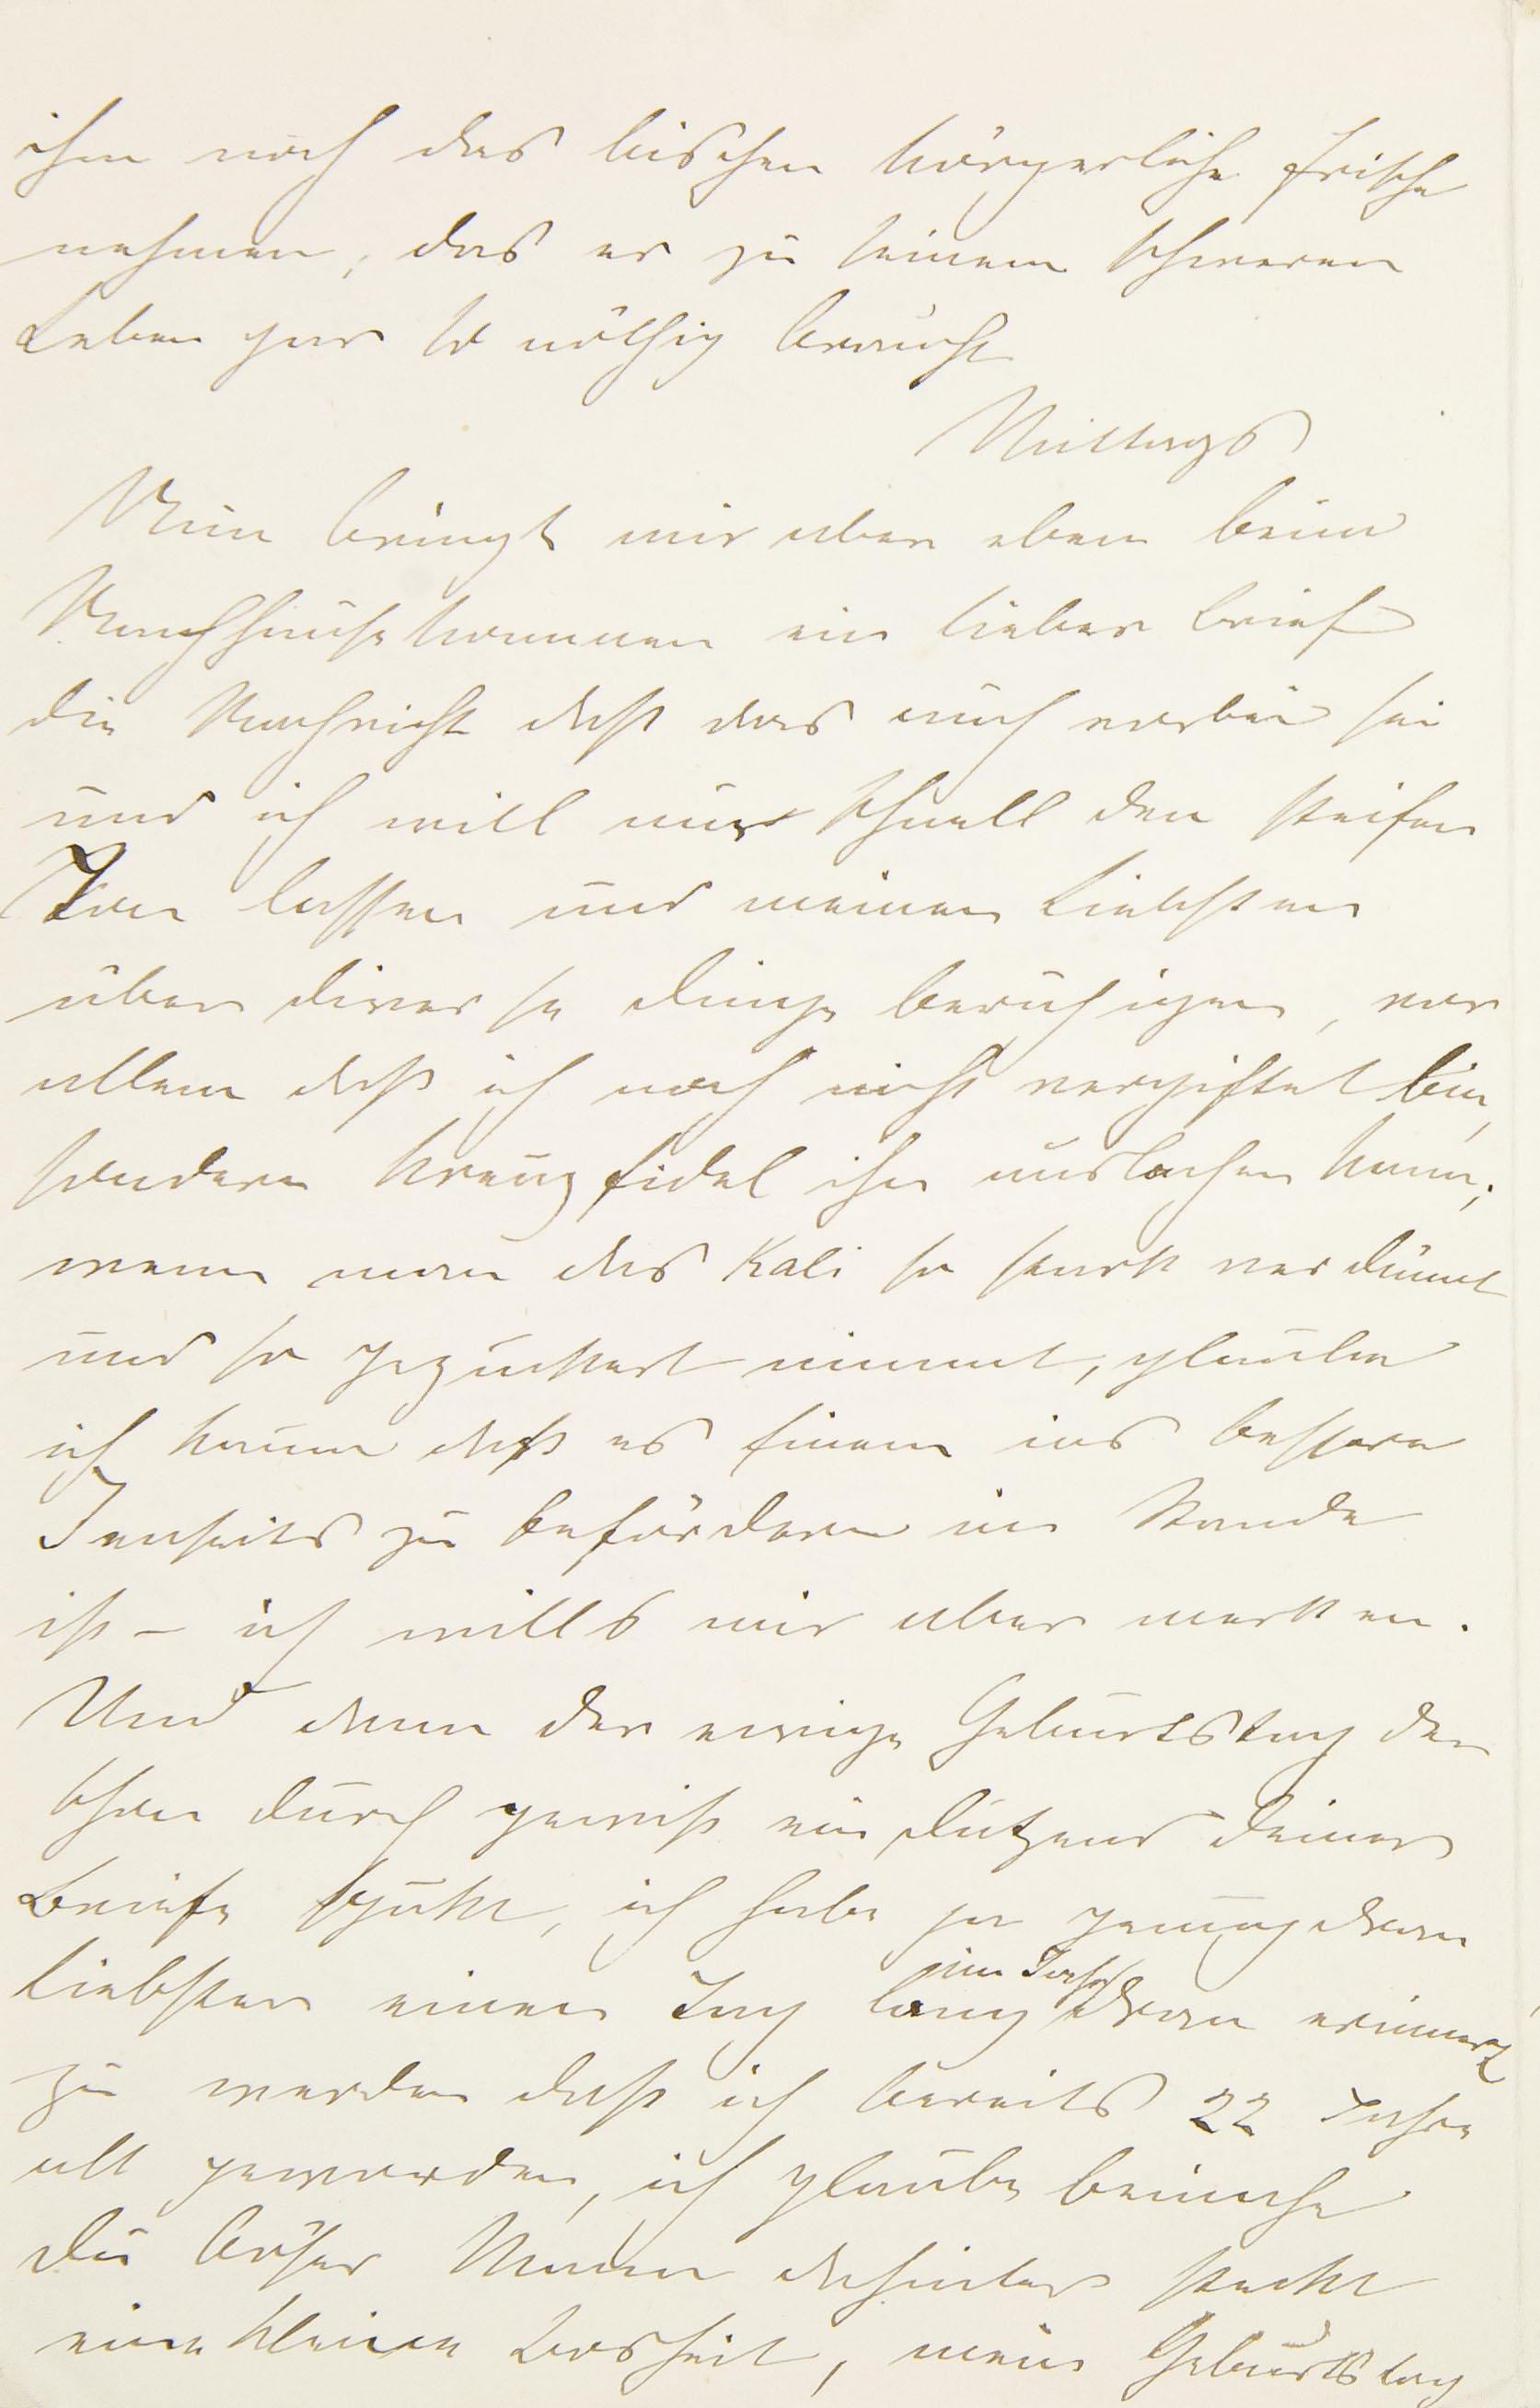 ihm noch das bischen körperliche Frische
nehmen, das er zu seinem schweren
Leben gar so nöthig braucht
Mittags
Nun bringt mir aber eben beim
Nachhausekommen ein lieber Brief
die Nachricht daß das auch vorbei sei
und ich will nur schnell den steifen
Ton lassen und meinen Liebsten
über diverse Dinge beruhigen, vor
allem daß ich noch nicht vergiftet bin,
sondern kreuzfidel ihn auslachen kann;
wenn man das Kali so stark verdünnt
und so gezuckert nimmt, glaube
ich kaum daß es Einen ins bessere
Jenseits zu befördern im Stande
ist – ich wills mir aber merken.
Und dann der ewige Geburtstag der
schon durch gewiß ein Dutzend Deiner
Briefe spukt, ich habe ja genug dran
Liebster einen Tag lang im Jahr dran erinnert
zu werden daß ich bereits 22 Jahre
alt geworden, ich glaube beinahe
Du böser Mann dahinter steckt
eine kleine Bosheit, mein Geburtstag